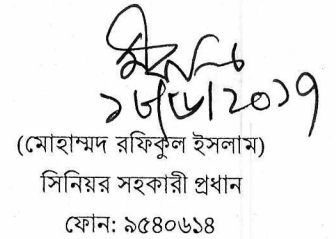 (মোহাম্মদ রফিকুল ইসলাম)
সিনিয়র সহকারী প্রধান
ফোন: ৯৫৪০৬১৪